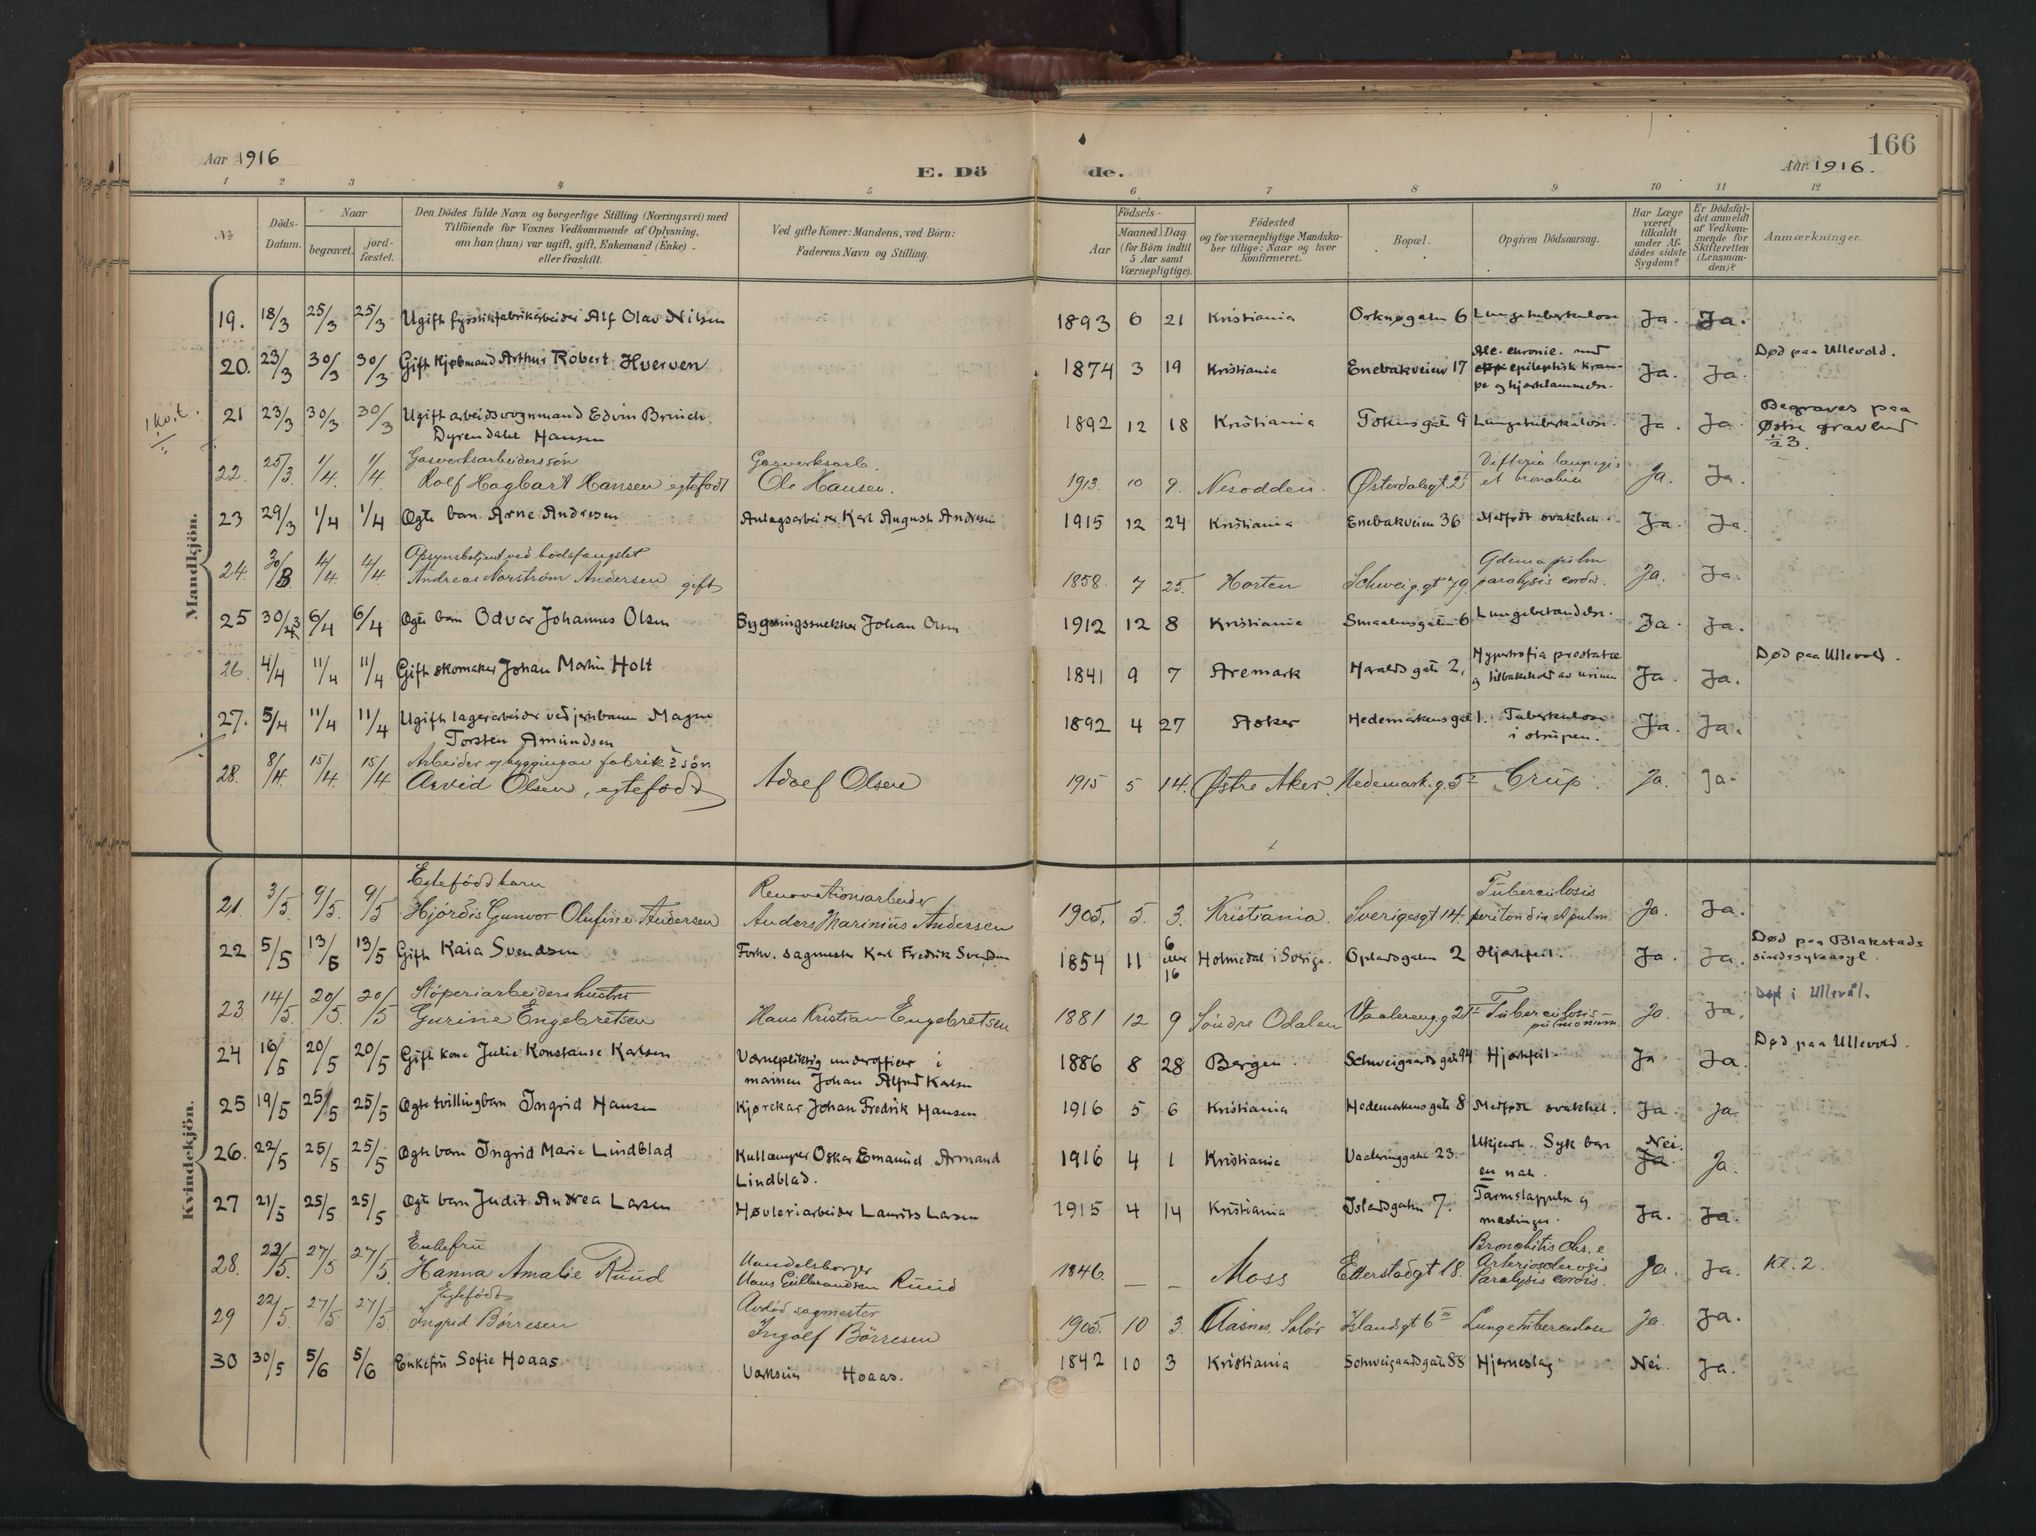 166
Aar 1916
E. Dö
de.
Aar 1916.
1 2 3 4 5 6 7 8 9 10 11 12
№
Döds-Datum.
Naar
begravet.
jord-fæstet.
Den Dödes fulde Navn og borgerlige Stilling (Næringsvei) med
Tilföiende for Voxnes Vedkommende af Oplysning,
om han (hun) var ugift, gift, Enkemand (Enke)
eller fraskilt.
Ved gifte Koner: Mandens, ved Börn:
Faderens Navn og Stilling.
Födsels-
Aar
Maaned. Dag.
(for Börn indtil
5 Aar samt
Værnepligtige).
Födested
og for værnepligtige Mandska-
ber tillige: Naar og hvor
konfirmeret.
Bopæl.
Opgiven Dödsaarsag.
Har Læge
været
tilkaldt
under Af-
dödes sidste
Sygdom?
Er Dödsfal-
det anmeldt
af Vedkom-
mende for
Skifteretten
(Lensman-
den)?
Anmærkninger.
Mandkjön.
19. 18/3 25/3 25/3 Ugift fyrstikfabrikarbeider Alf Olav Nilsen 1893 6 21 Kristiania Orknøgaten 6 Lungetuberkulose Ja. Ja.
20. 23/3 30/3 30/3 Gift Kjøbmand Arthur Robert Hverven 1874 3 19 Kristiania Enebakveien 17 Alc. chronic. med
epileptisk kram-
pe og hjertelammelse. Ja. Ja. Død paa Ullevold.
21 23/3 30/3 30/3 Ugift arbeidsvognmand Edvin Brinch
Dyrendahl Hansen 1892 12 18 Kristiania Tøiensgaten 9 Lungetuberkulose. Ja. Ja. Begraves paa
Østre gravlund
22. 25/3. 1/4. 1/4. Gasverksarbeiderssön
Rolf Hagbart Hansen egtefödt Gasverksarb.
Ole Hansen. 1913. 10 9. Nesodden. Østerdalsgt. 2 Difteria laryngis
et bronchiae Ja. Ja.
23 29/3 1/4 1/4 Ægte barn Arne Andresen Anlagsarbeider Karl August Andresen 1915 12 24 Kristiania Enebakveien 36 Medfødt svakhet. Ja. Ja.
24. 30/3 4/4. 4/4. Opsynsbetjent ved bodsfængslet
Andreas Norström Andersen gift 1858. 7 25. Horten Schweig.gt 79. Ödema pulm
paralysis cordis. Ja. Ja.
25 30/3 6/4 6/4 Ægte barn Odvar Johannes Olsen Bygningssnekker Johan Olsen 1912 12 8 Kristiania Smaalensgaten 6 Lungebetændelse. Ja. Ja.
26. 4/4 11/4 11/4 Gift skomaker Johan Martin Holt 1841 9 7 Aremark Haraldsgate 2, Hypertrofia prostatae
og tilbakehold av urinen Ja. Ja. Død paa Ullevold.
27. 5/4 11/4 11/4 Ugift lagerarbeider ved jernbanen Magne
Torsten Amundsen 1892 4 27 Asker Hedemarkensgat 1. Tuberkulose
i strupen. Ja. Ja.
28. 8/4. 15/4. 15/4. Arbeider v/ bygningav fabrik's sön
Arvid Olsen, egtefödt Adolf Olsen 1915 5 14. Østre Aker. Hedemark.g. 5 Crup. Ja. Ja.
Kvindekjön.
21. 3/5. 9/5. 9/5 Egtefödt barn
Hjördis Gunvor Olufine Andersen Renovationsarbeider
Anders Marinius Andersen 1905. 5. 3. Kristiania. Sverigesgt 14. Tuberculosis
peritonei et pulm. Ja. Ja.
22 5/5 13/5 13/5 Gift Kaia Svendsen Forhv. sagmester Karl Fredrik Svendsen 1854 11 6 eller 16 Holmedal i Sverige. Oplandsgaten 2 Hjertefeil. Ja. Ja. Død paa Blakstads
sindssykeasyl.
23. 14/5. 20/5. 20/5 Stöperiarbeiders hustru
Gurine Engebretsen Hans Kristian Engebretsen 1881 12 9 Söndre Odalen Vaalereng.g 21 Tuberculosis
pulmonum. Ja. Ja. Død i Ullevål.
24 16/5 20/5 20/5 Gift kone Julie Konstanse Karlsen Vernepliktig underofficer i
marinen Johan Alfred Karlsen 1886 8 28 Bergen. Schweigaards gate 94 Hjertefeil. Ja. Ja. Død paa Ullevold.
25 19/5 25/5 25/5 Ægte tvillingbarn Ingrid Hansen Kjørekar Johan Fredrik Hansen 1916 5 6 Kristiania Hedemarkens gate 8 Medfødt svakhet. Ja. Ja
26. 22/5 25/5 25/5 Ægte barn Ingrid Marie Lindblad Kullemper Oskar Emanuel Armand
Lindblad. 1916 4 1 Kristiania Vaalereng gate 23. Ukjendt. Syk bare
en nat. Nei.
Ja. Ja.
27 21/5 25/5 25/5 Ægte barn Judit Andrea Larsen Høvleriarbeider Laurits Larsen 1915 4 14 Kristiania Islandsgaten 7. Tarmslappelse og
meslinger. Ja. Ja.
28. 22/5. 27/5 27/5. Enkefru
Hanna Amalie Ruud Handelsborger
Hans Gulbrandsen Ruud 1846. — — Moss Etterstadgt 18. Bronchitis chr. e
Arteriosclerosis
Paralysis cordis. Ja. Ja. Kl. 2.
29 22/5. 27/5. 27/5. Egtefödt
Ingrid Börresen Avdöd sagmester
Ingolf Börresen 1905. 10 3. Aasnes, Solör Islandsgt 6 III Lungetuberculose Ja. Ja.
30 30/5 5/6 5/6 Enkefru Sofie Hoaas. Verkseier Hoaas. 1842 10 3 Kristiania Schweigaardsgate 88 Hjerneslag Nei. Ja.